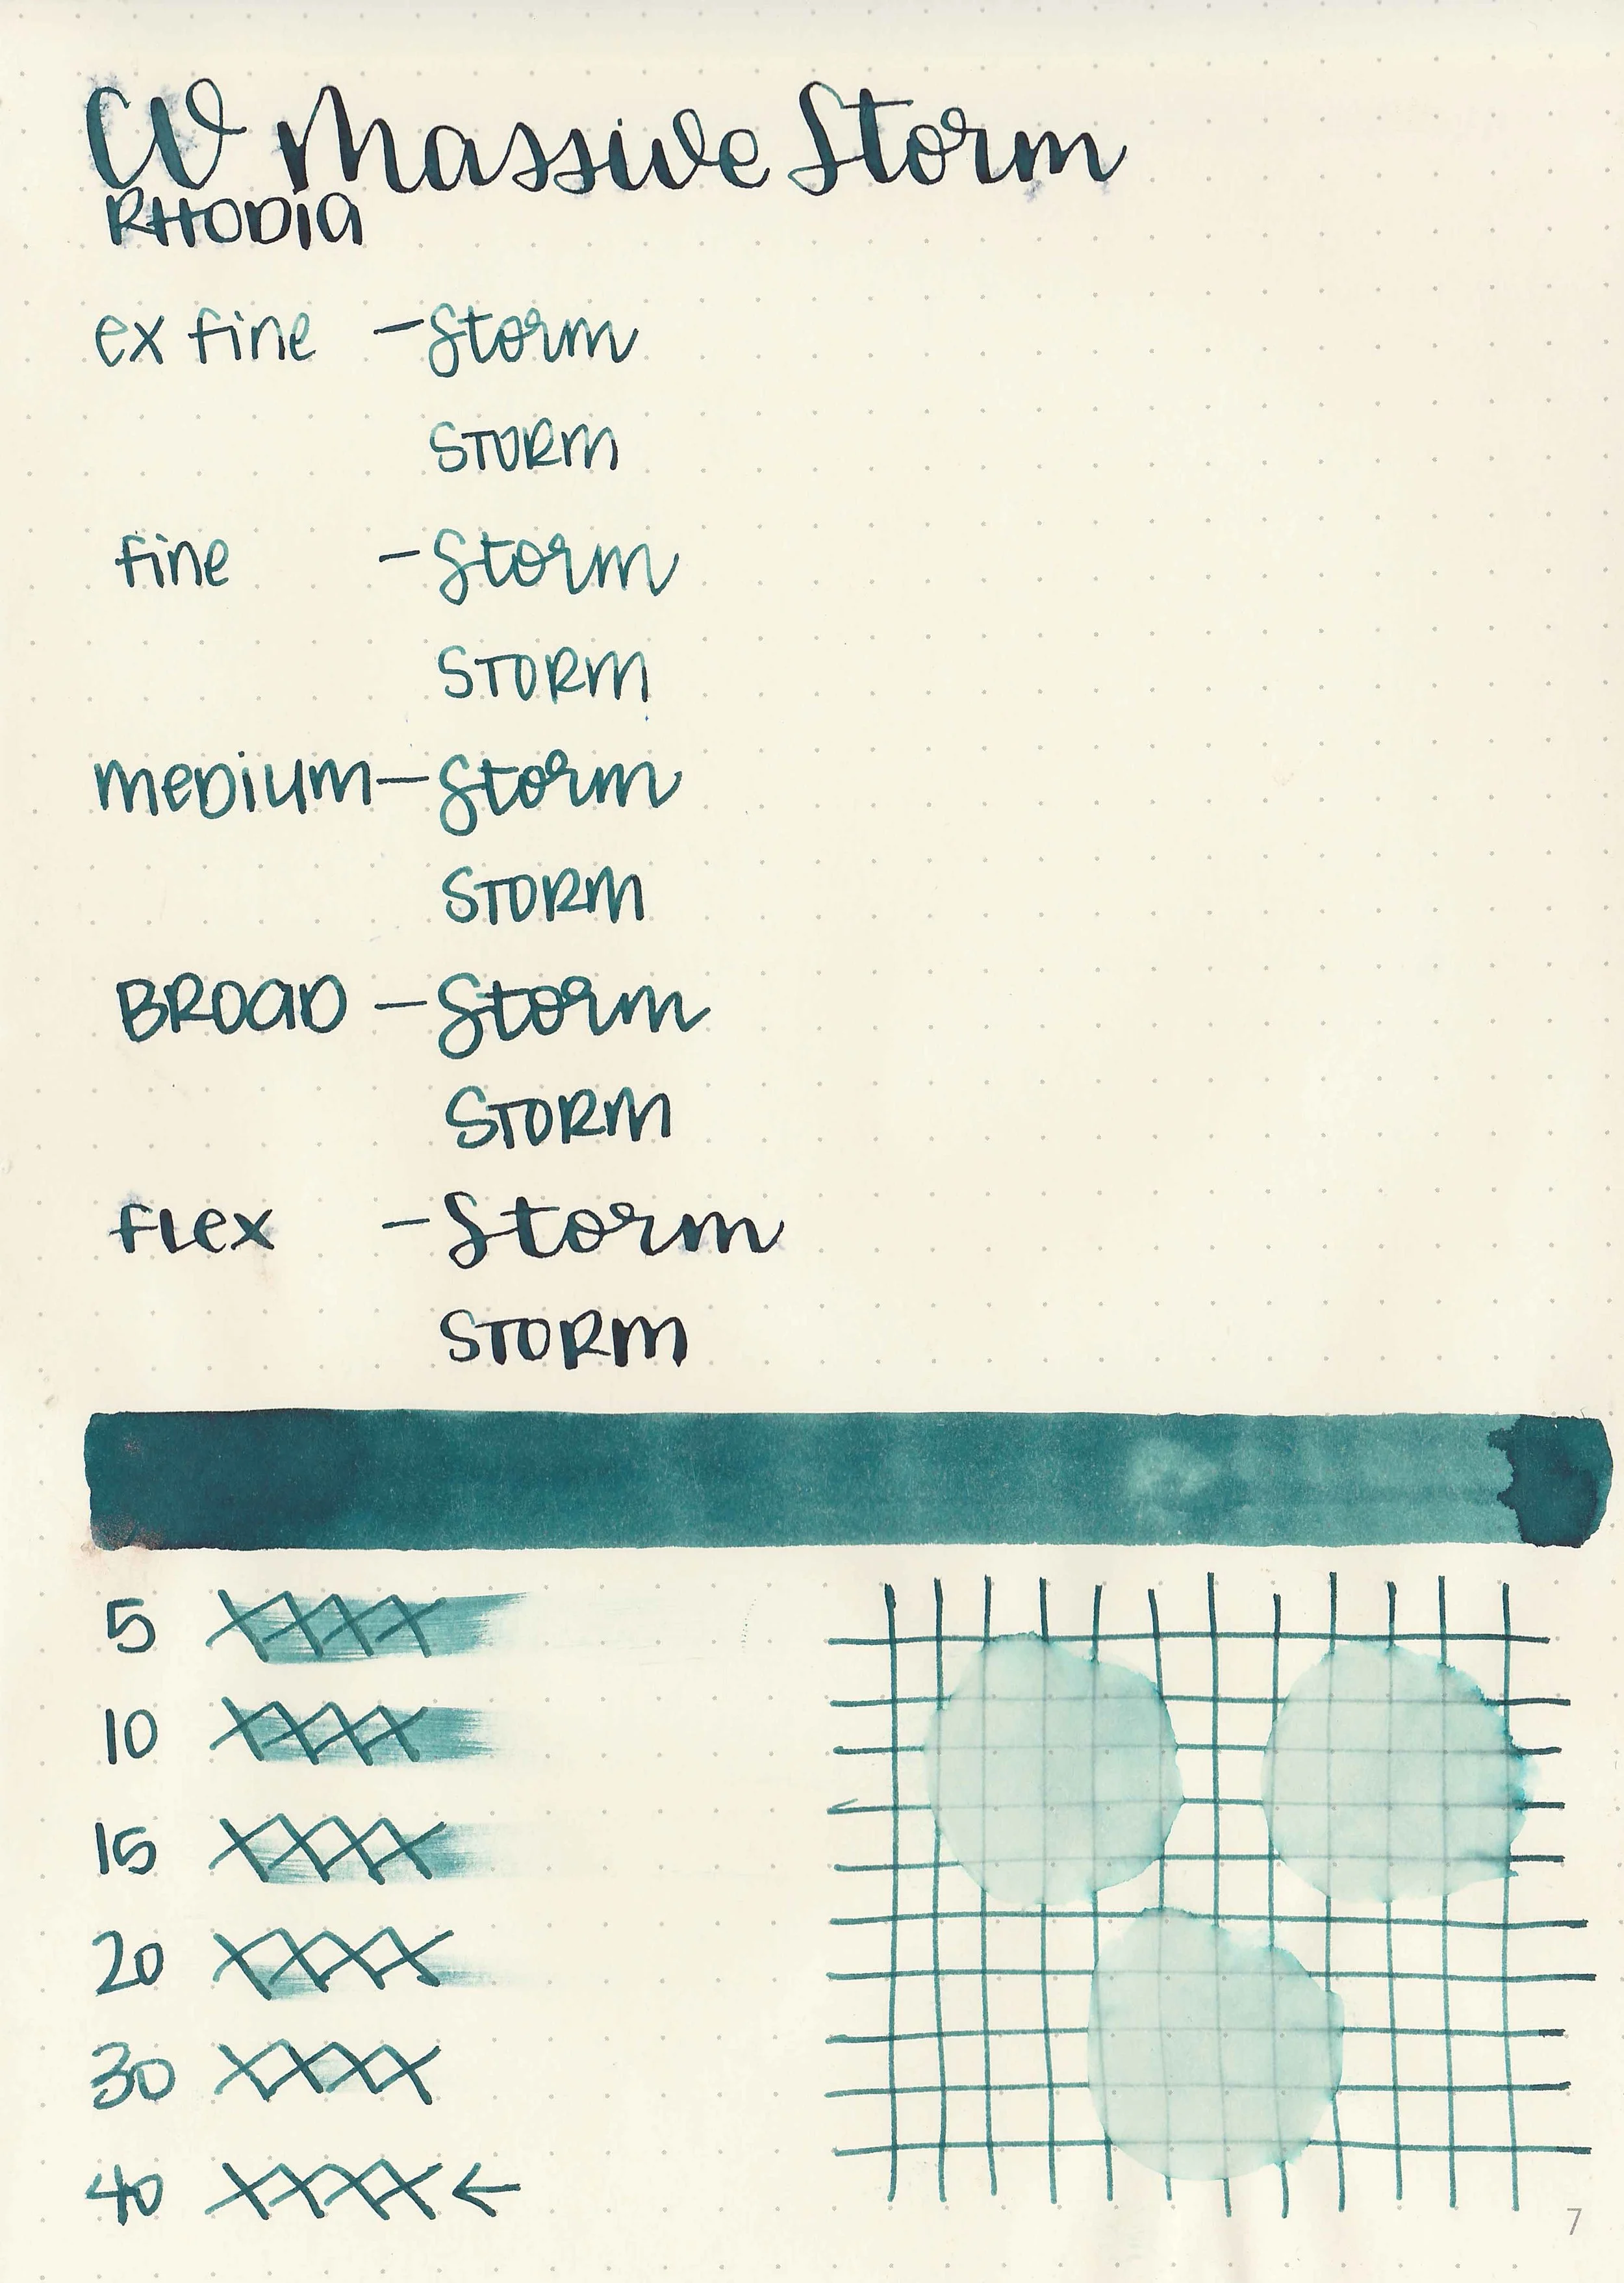 CV Massive Storm
RHODIA
ex fine - Storm
STORM
fine - Storm
STORM
medium - Storm
STORM
BROAD - Storm
STORM
flex - Storm
STORM
5 XXXX
10 XXXX
15 XXXX
20 XXXX
30 XXXX
40 XXXX ←
7